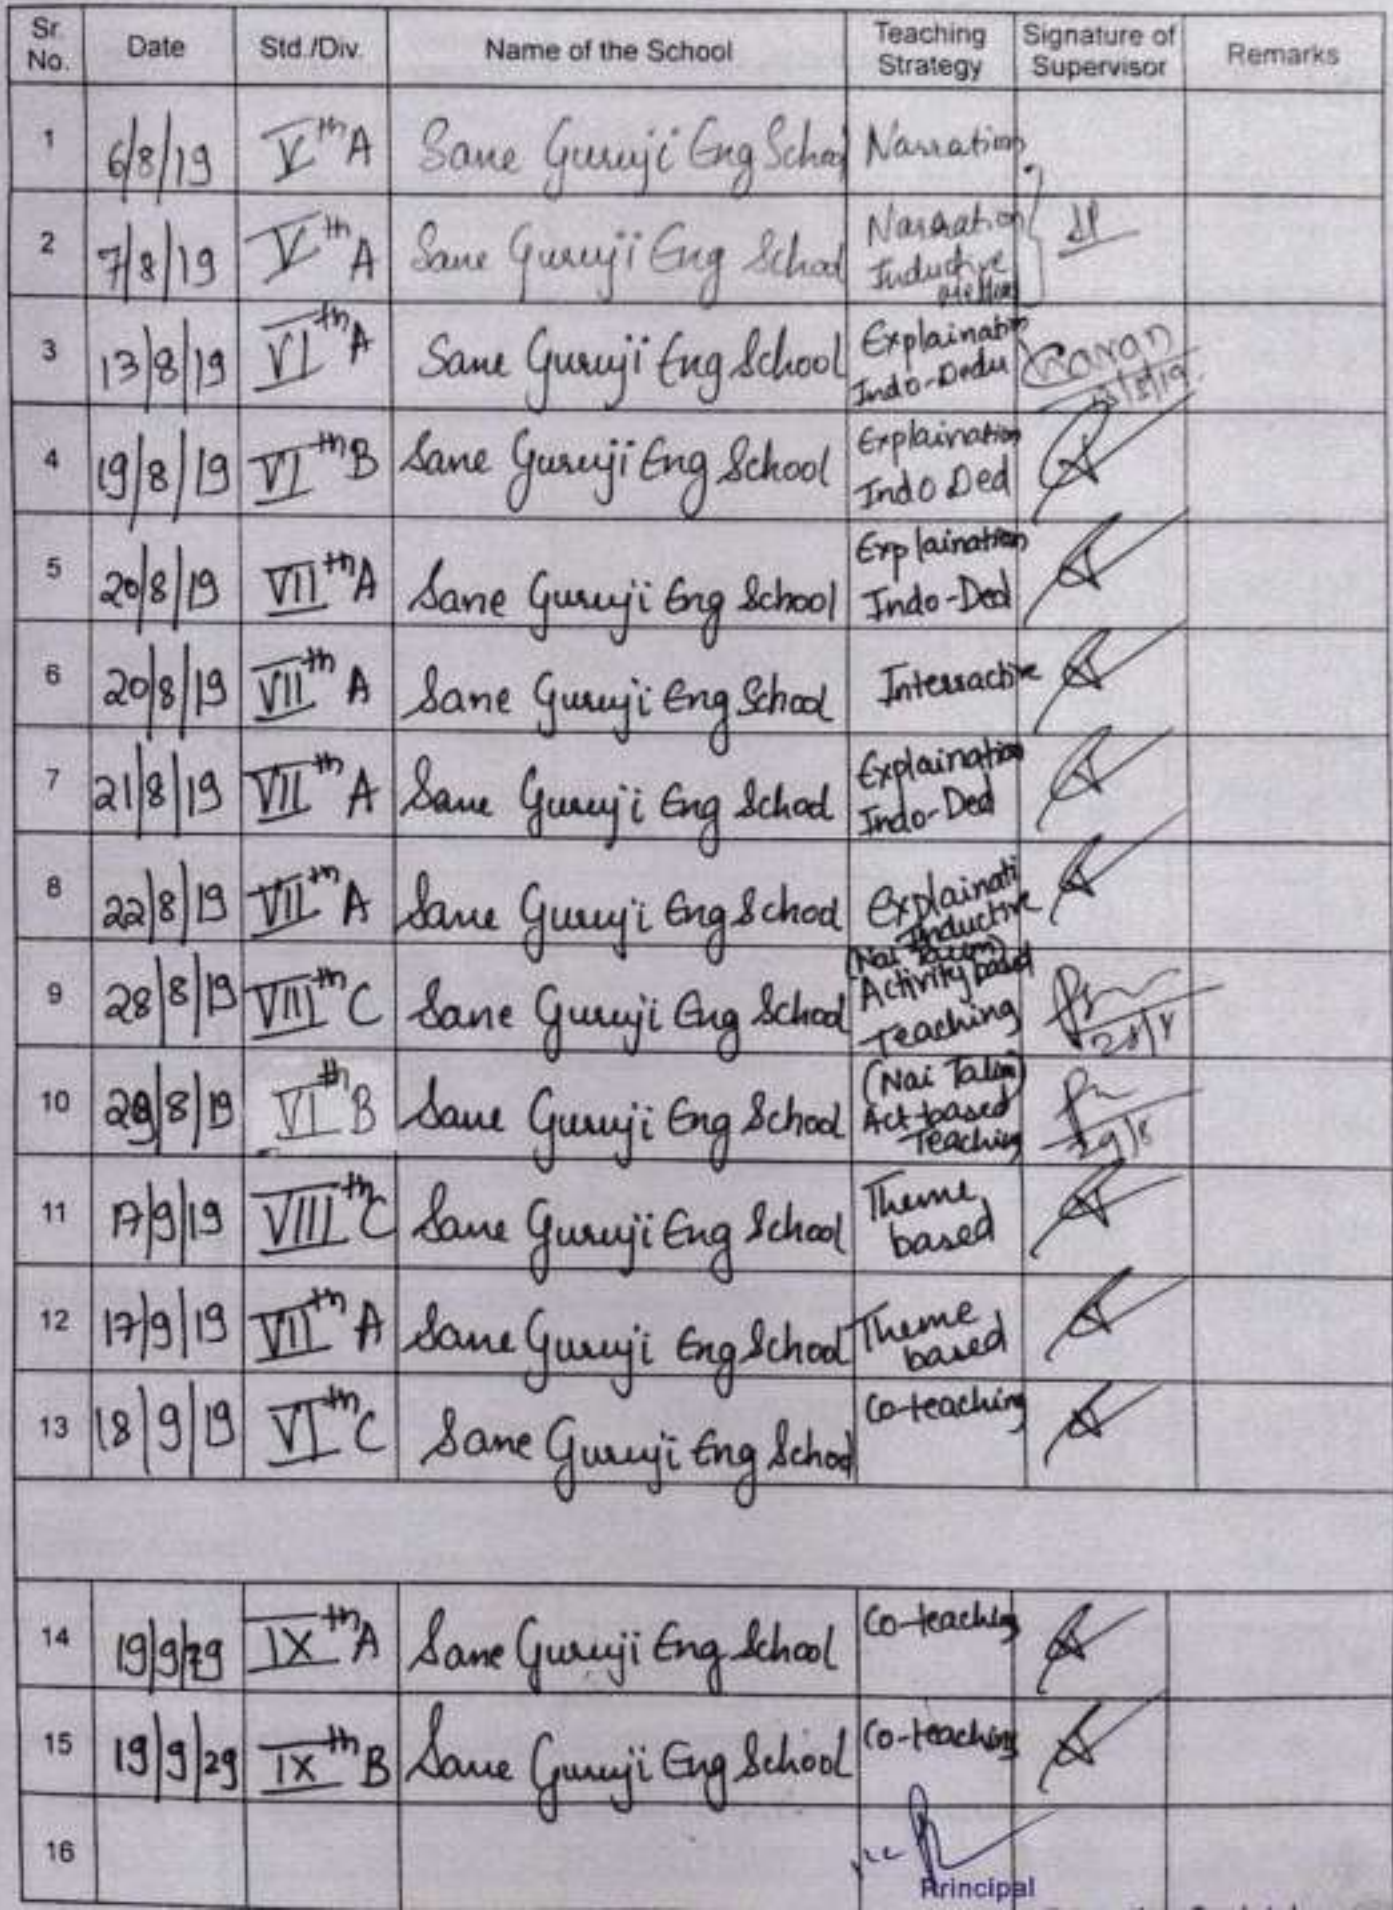 Sr. No. Date Std./Div. Name of the School Teaching Strategy Signature of Supervisor Remarks
1 6/8/19 Vth A Sane Guruji Eng School Narration
2 7/8/19 Vth A Sane Guruji Eng School Narration Inductive Method
3 13/8/19 VIth A Sane Guruji Eng School Explaination Indo-Dedu
4 19/8/19 VIth B Sane Guruji Eng School Explaination Indo Ded
5 20/8/19 VIIth A Sane Guruji Eng School Explaination Indo-Ded
6 20/8/19 VIIth A Sane Guruji Eng School Interractive
7 21/8/19 VIIth A Sane Guruji Eng School Explaination Indo-Ded
8 22/8/19 VIIth A Sane Guruji Eng School Explainati Inductive
9 28/8/19 VIIIth C Sane Guruji Eng School (Nai Talim) Activity based Teaching 28/8
10 29/8/19 VIth B Sane Guruji Eng School (Nai Talim) Act-based Teaching 29/8
11 17/9/19 VIIIth C Sane Guruji Eng School Theme based
12 17/9/19 VIIth A Sane Guruji Eng School Theme based
13 18/9/19 VIth C Sane Guruji Eng School Co-teaching
14 19/9/29 IXth A Sane Guruji Eng School Co-teaching
15 19/9/29 IXth B Sane Guruji Eng School Co-teaching
16
Principal